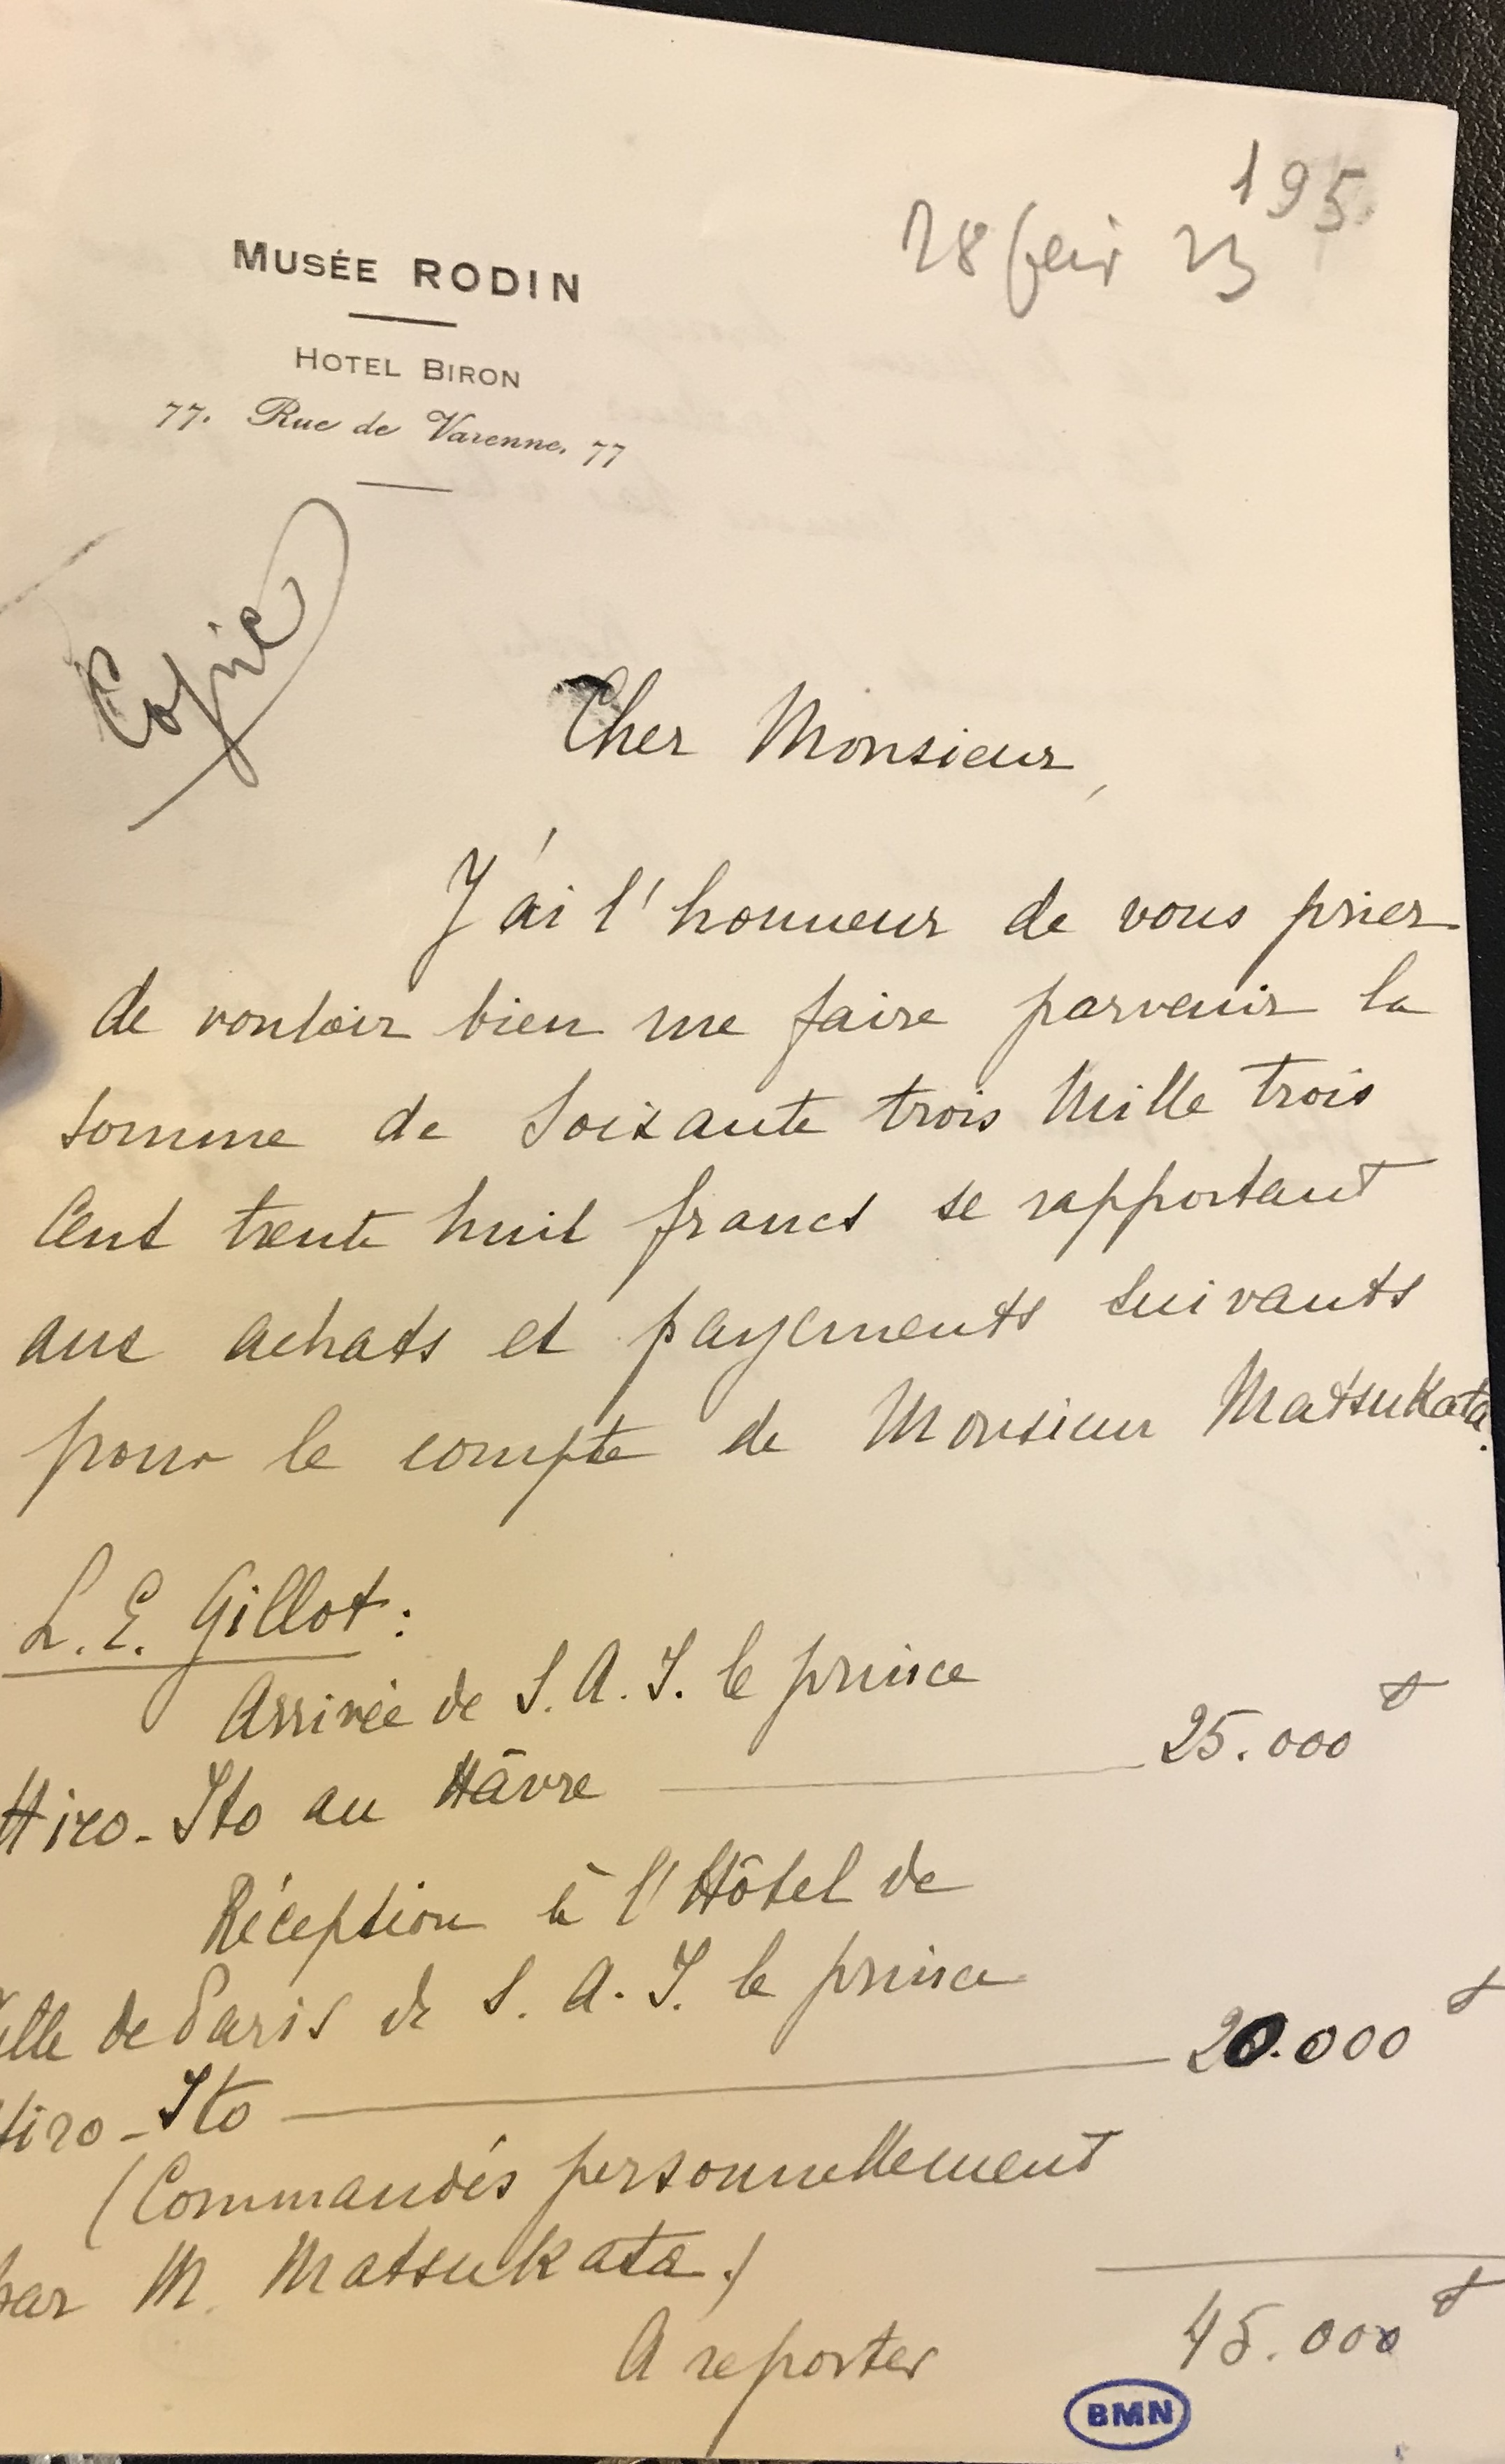 195
28 fevr 23
MUSÉE RODIN
HOTEL BIRON
77. Rue de Varenne, 77
Copie
Cher Monsieur,
J'ai l'honneur de vous prier
de vouloir bien me faire parvenir la
somme de Soixante trois Mille trois
Cent trente huit francs se rapportant
aux achats et payements suivants
pour le compte de Monsieur Matsukata.
L. E. Gillot :
Arrivée de S. A. I. le prince
Hiro-Ito au Hâvre 25.000 f
Réception à l'Hôtel de
ille de Paris de S. A. I. le prince
Hiro-Ito 20.000 f
(Commandés personnellement
par M. Matsukata.)
45.000 f
A reporter
BMN